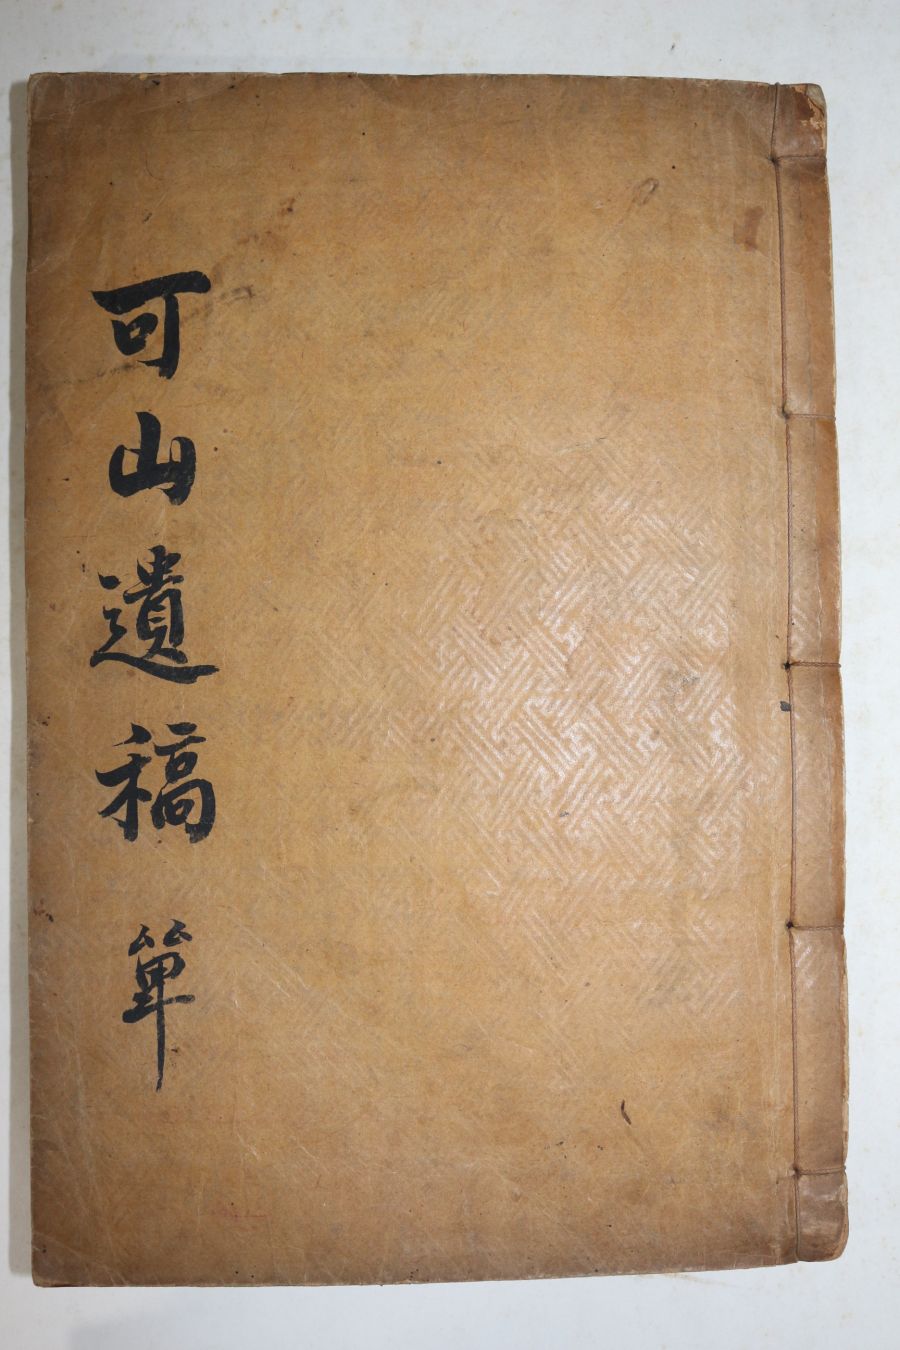 可山遺稿 單